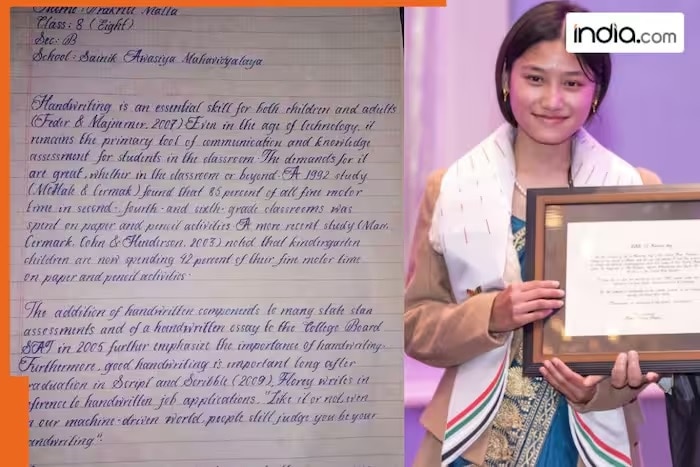 Name: Prakriti Malla
Class: 8 (Eight)
Sec: B
School: Sainik Awasiya Mahavidyalaya
Handwriting is an essential skill for both children and adults
(Feder & Majnemer, 2007). Even in the age of technology, it
remains the primary tool of communication and knowledge
assessment for students in the classroom. The demands for it
are great, whether in the classroom or beyond. A 1992 study
(McHale & Cermak) found that 85 percent of all fine motor
time in second-, fourth- and sixth-grade classrooms was
spent on paper and pencil activities. A more recent study (Marr,
Cermark, Cohn & Henderson, 2003) noted that kindergarten
children are now spending 42 percent of their fine motor time
on paper and pencil activities.
The addition of handwritten components to many state stan
assessments and of a handwritten essay to the College Board
SAT in 2005 further emphasize the importance of handwriting.
Furthermore, good handwriting is important long after
graduation in Script and Scribble (2009), Florey writes in
eference to handwritten job applications, "Like it or not even
n our machine-driven world, people still judge you by your
andwriting".
india.com